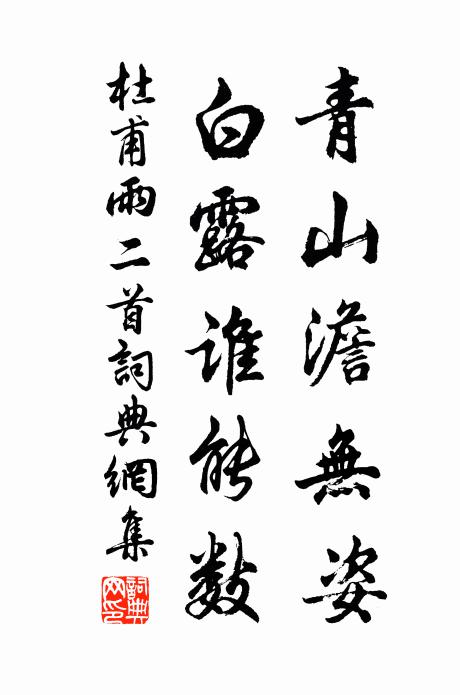 青山澹無姿
白露誰能數
杜甫雨二首詞典網集
詞典網印